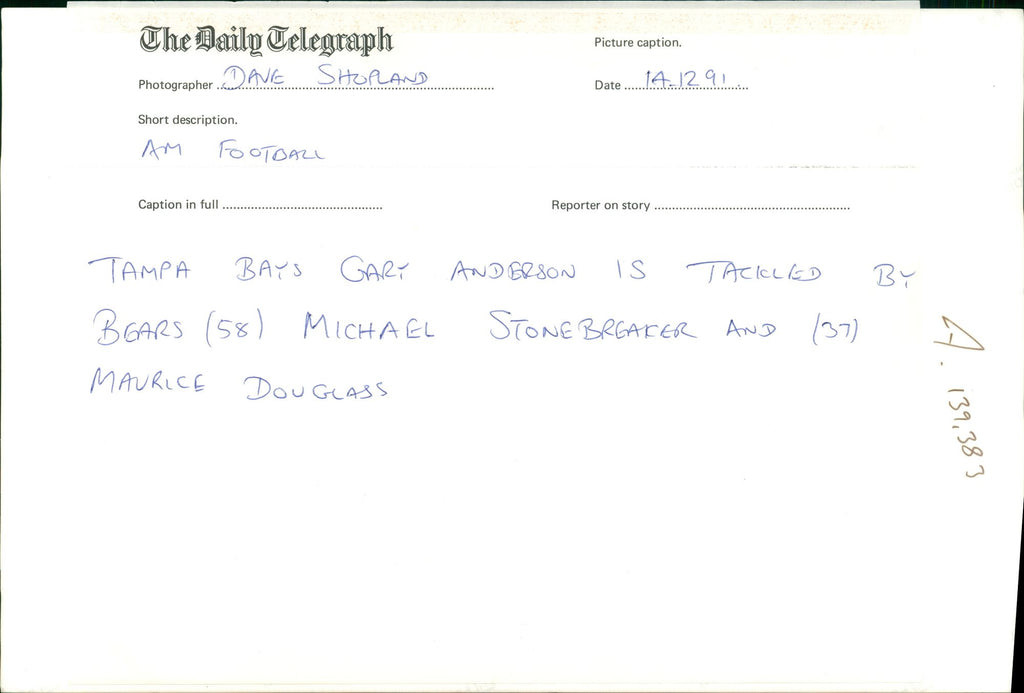 The Daily Telegraph
Picture caption.
Photographer DAVE SHOPLAND
Date 14.12.91
Short description.
AM FOOTBALL
Caption in full
Reporter on story
TAMPA BAYS GARY ANDERSON IS TACKLED BY
BEARS (58) MICHAEL STONEBREAKER AND (37)
MAURICE DOUGLASS
A. 139,383